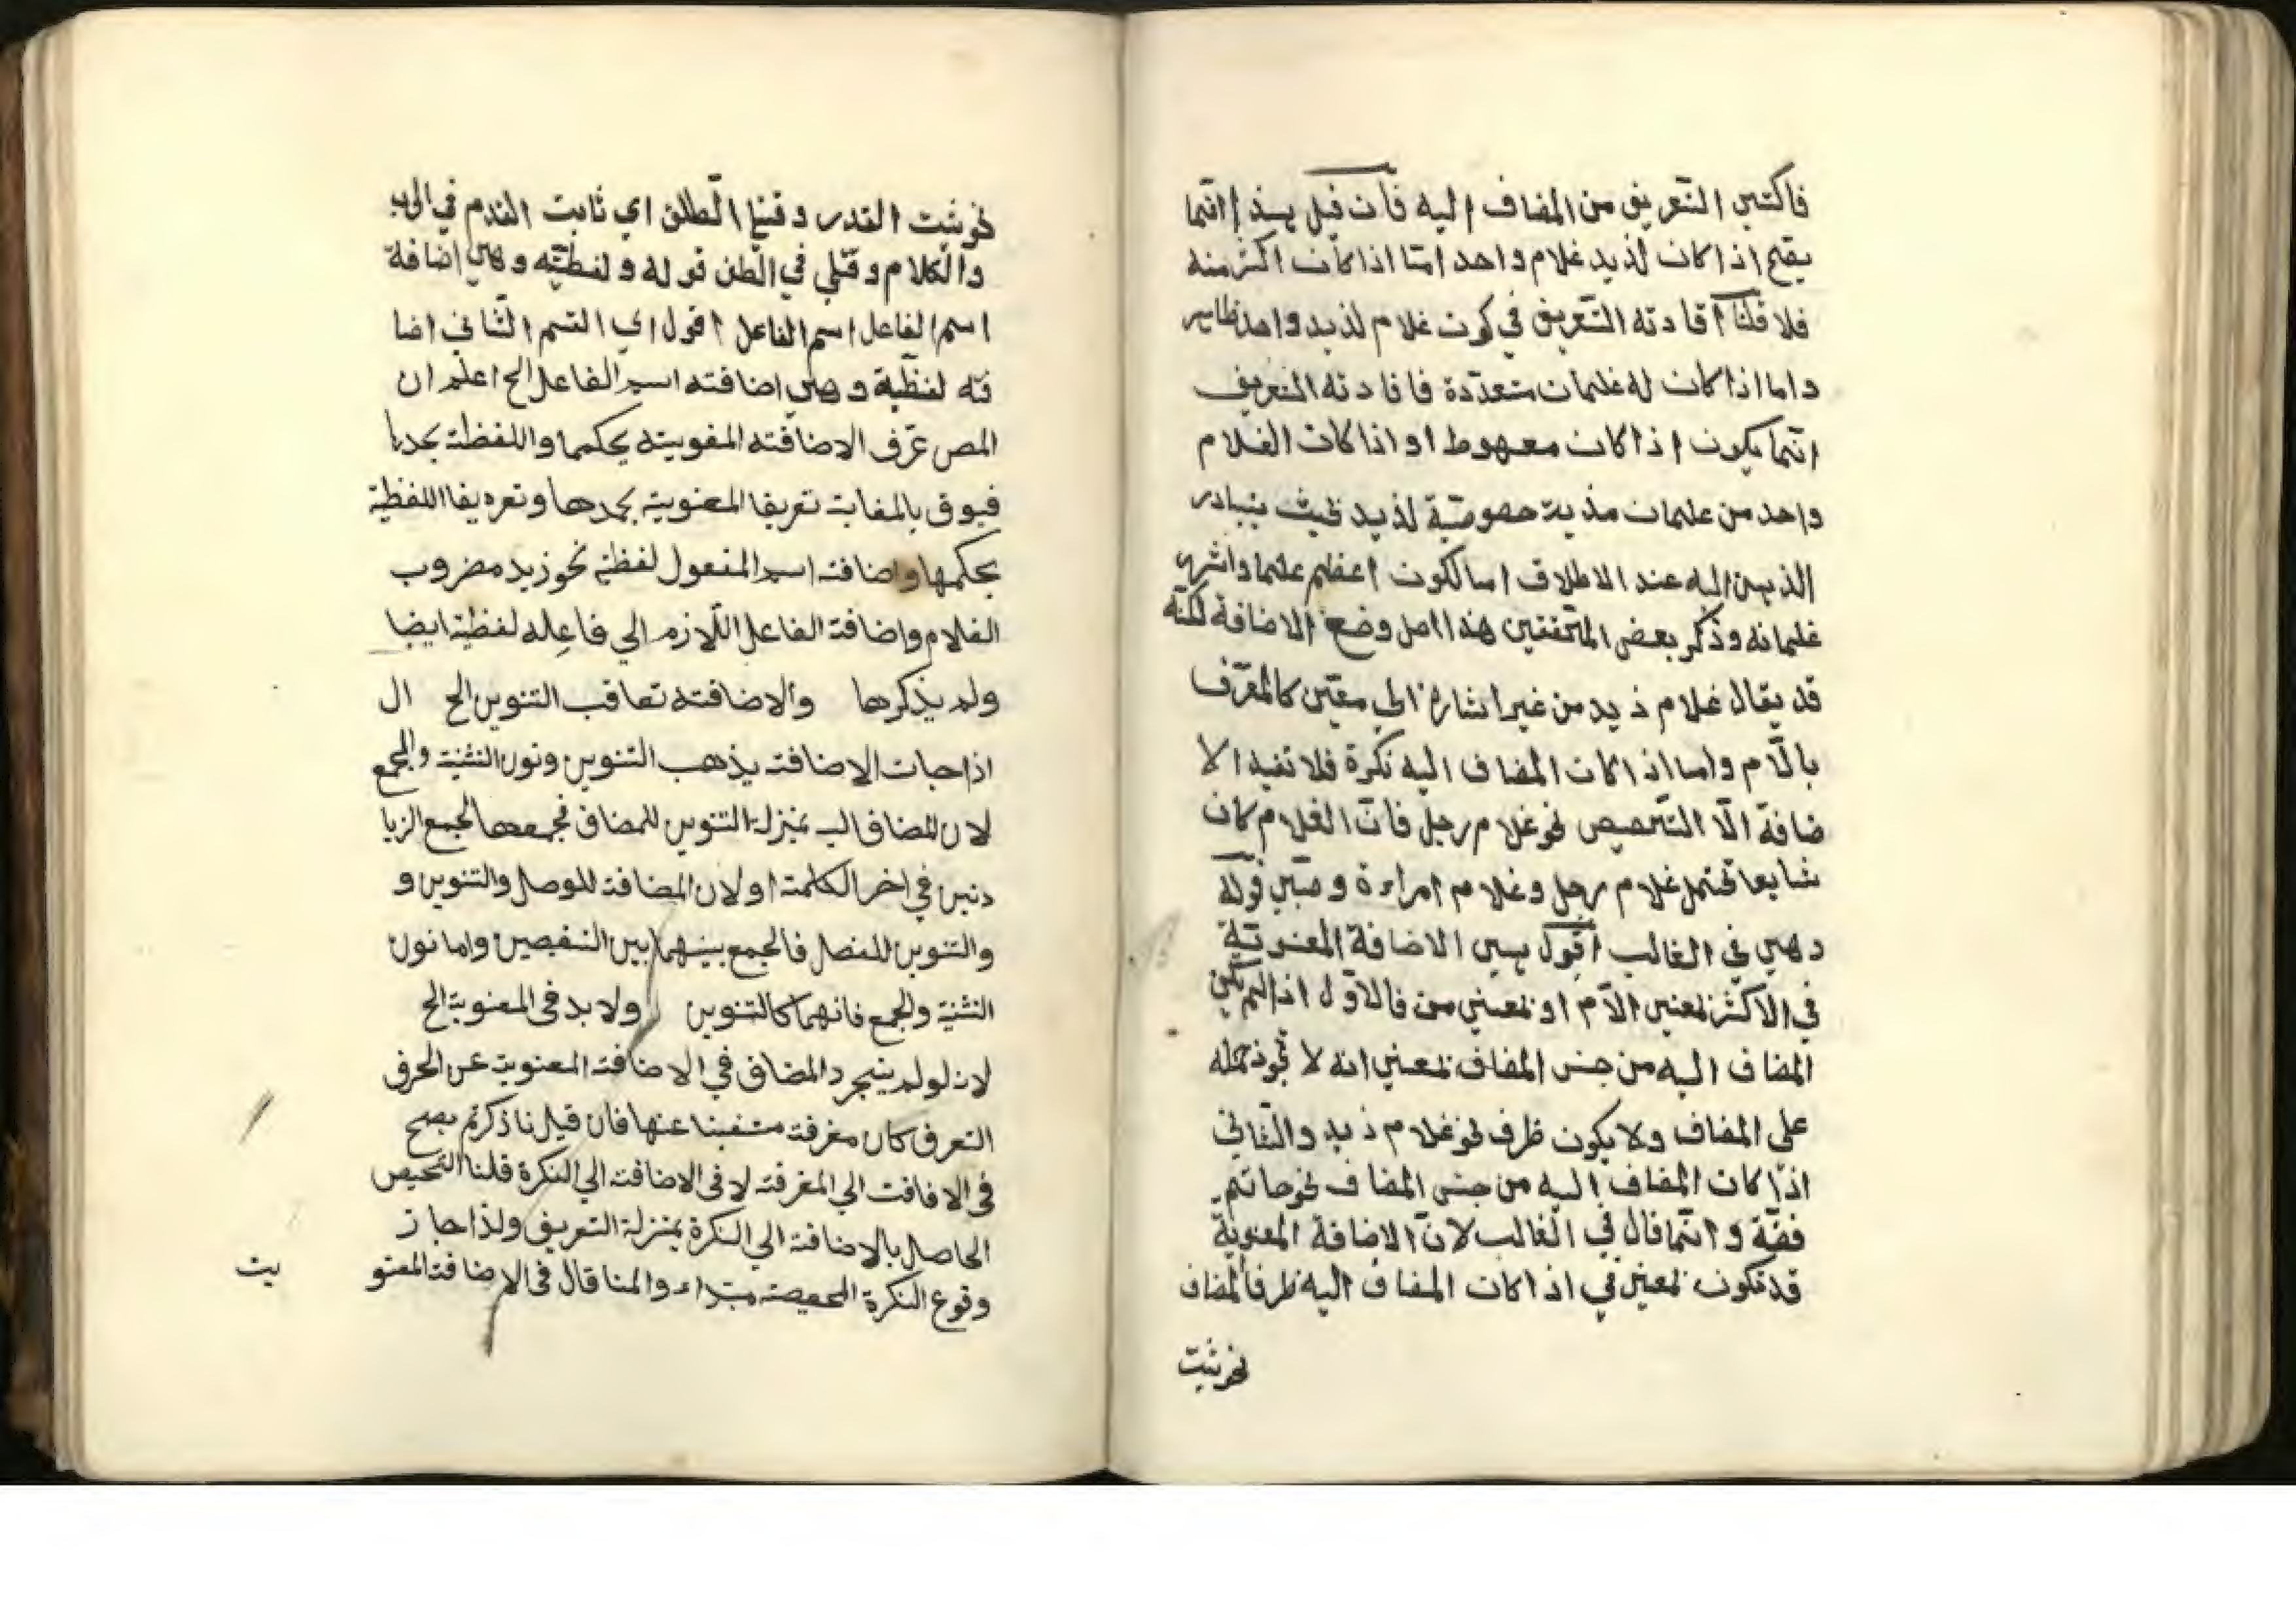 فاكتسى التعريف من المضاف اليه فان قيل هذا انما
يصح اذا كان لذيد غلام واحد امّا اذا كان اكثر منه
فلا قلنا افادته التعريف في كون غلام لذيد واحد ظاهر
واما اذا كان له غلمان متعدّدة فافادته التعريف
انّما يكون اذا كان معهوط او اذا كان الغلام
واحد من غلمان مذية حصوصيّة لذيد بحيث يتبادر
الذهن اليه عند الاطلاق اما لكون اعظم غلما واشهر
غلمانه وذكر بعض المتحققين هذا اصل وضع الاضافة لكنّه
قد يقال غلام ذيد من غير اشارة الي معيّن كالمعرّف
بالّام واما اذا كان المضاف اليه نكرة فلا تفيد الا
ضافة الّا التخصيص نحو غلام رجل فانّ الغلام كان
شايعا تحتمل غلام رجل وغلام امراءة قوله
وهي في الغالب اقول هي الاضافة المعنويّة
في الاكثر بمعني الّام او بمعني من فالاوّل اذا لم يكن
المضاف اليه من جنس المضاف بمعني انه لا تجوذ حمله
علي المضاف ولا يكون ظرف نحو غلام ذيد والثّاني
اذا كان المضاف اليه من جنس المضاف نحو خاتم
فضّة وانّما قال في الغالب لانّ الاضافة المعنويّة
قد تكون بمعني في اذا كان المضاف اليه ظرفا لمضاف
نحو ثبت
نحو ثبت القدر اي ثابت القدم في الحرب
والكلام في الطن قوله ولفظيّه وهي اضافة
اسم الفاعل اسم الفاعل اقول اي القسم الثّاني اضا
فته لفظيّة وهي اضافته اسم الفاعل الخ اعلم ان
المص عرّف الاضافته المغويته بحكمها واللفظة بحدها
بالمقابة تعريفا المعنوية بحدها وتعريفا اللفظية
بحكمها واضافة اسم المفعول لفظية نحو زيد مضروب
الغلام واضافة الفاعل اللّازم الي فاعله لفظية ايضا
ولم يذكرها والاضافته تعاقب التنوين الخ ال
اذا جات الاضافته يذهب التنوين ونون التثنية والجمع
لان المضاف اليه بمنزلة التنوين للمضاف فجمعها لجمع الزيا
دتين في اخر الكلمة او لان المضافة للوصل والتنوين و
والتنوين للفصل فالجمع بينهما بين النقيصين واما نون
التثنية والجمع فانهما كالتنوين ولا بد في المعنوية الخ
لانه لو لم يتجرد المضاف في الاضافة المعنوية عن الحرف
التعرف كان مغرفة عنها فان قيل ما ذكرتم يصح
في الاضافت الي المغرفته لا في الاضافته الي النكرة قلنا التحيص
الحاصل بالاضافة الي النكرة بمنزلة التعريف ولذا جاز
وقوع النكرة المحصصة مبتداء والمنا قال في الاضافة المعنو
يت